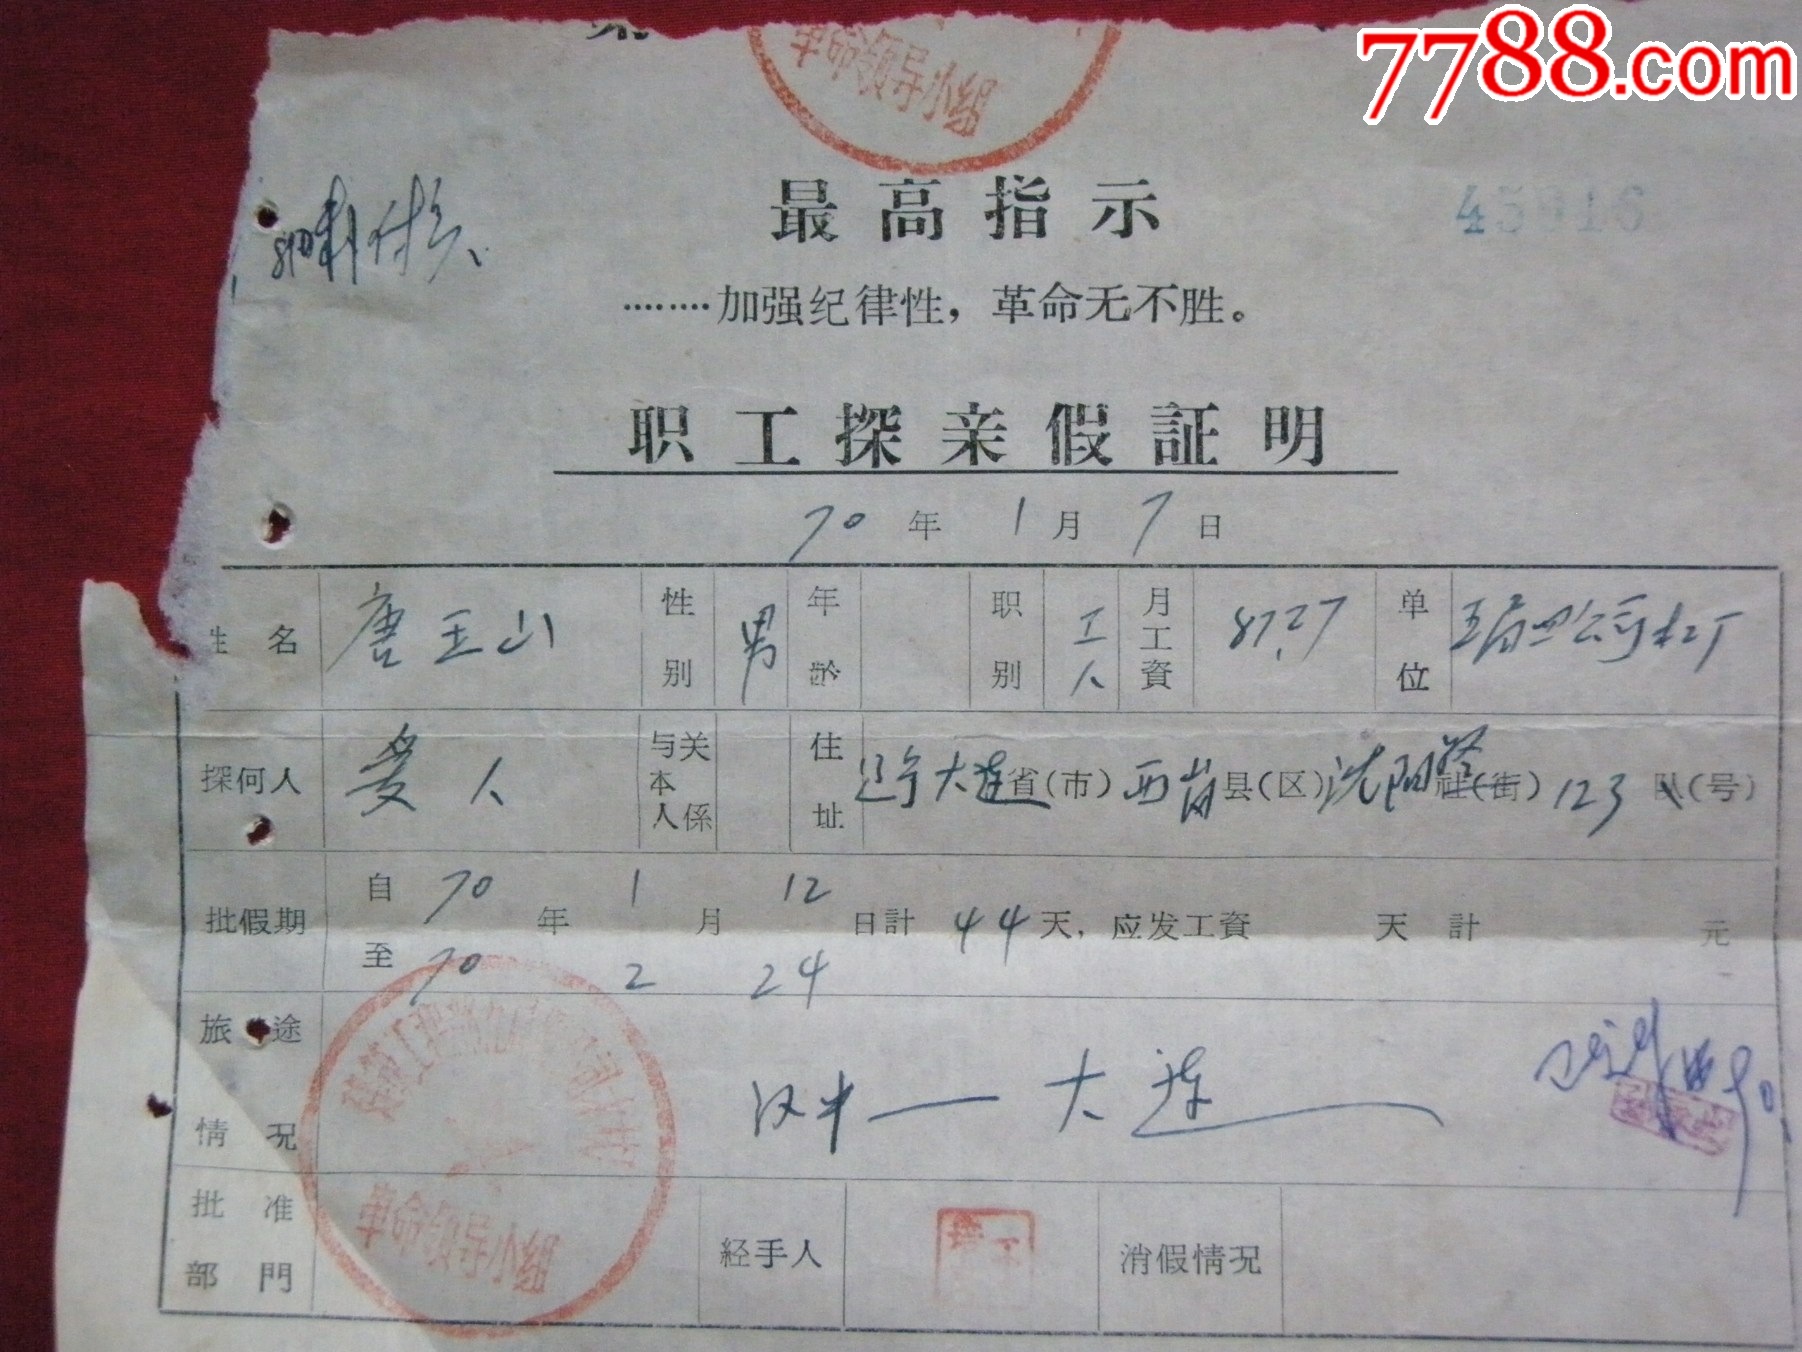 7788.com
革命领导小组
最高指示
45016
………加强纪律性，革命无不胜。
职工探亲假証明
70年1月7日
姓名 唐玉山 性别 男 年龄 职别 工人 月工資 87.27 单位 五局四公司木工厂
探何人 爱人 与本人关係 住址 辽宁大连省(市)西岗县(区)沈阳路社(街)123队(号)
批假期 自70年1月12日計44天，应发工資 天 計 元
至70 2 24
旅途情况 汉中—大连
革命领导小组
批准部門 経手人 消假情况